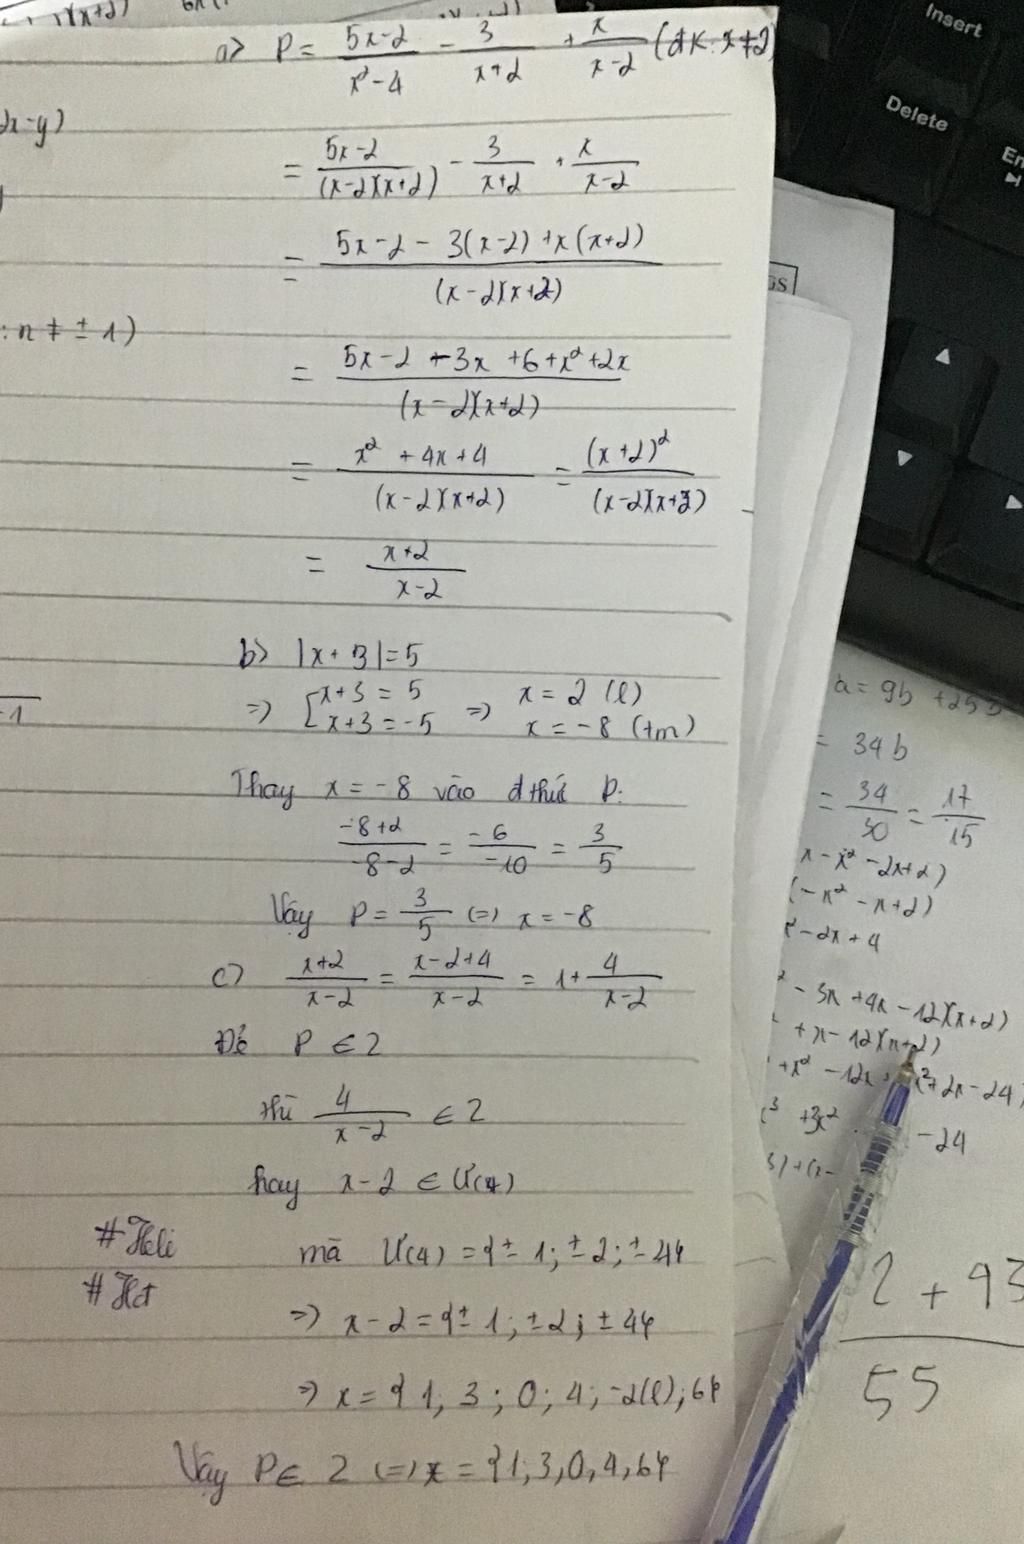 a> P = (5x-2)/(x²-4) - 3/(x+2) + x/(x-2) (đk: x≠2)
2x-y)
= (5x-2)/((x-2)(x+2)) - 3/(x+2) + x/(x-2)
= (5x-2 - 3(x-2) + x(x+2))/((x-2)(x+2))
: n ≠ ± 1)
= (5x-2 - 3x + 6 + x² + 2x)/((x-2)(x+2))
= (x² + 4x + 4)/((x-2)(x+2)) = (x+2)²/((x-2)(x+2))
= (x+2)/(x-2)
b> |x+3| = 5
=> [x+3 = 5 => x = 2 (l)
x+3 = -5 x = -8 (tm)
Thay x = -8 vào đ thức P:
(-8+2)/(-8-2) = -6/-10 = 3/5
Vậy P = 3/5 (=) x = -8
c> (x+2)/(x-2) = (x-2+4)/(x-2) = 1 + 4/(x-2)
Để P ∈ Z
thì 4/(x-2) ∈ Z
hay x-2 ∈ Ư(4)
#Heli mà Ư(4) = {± 1; ± 2; ± 4}
#Hđ
=> x-2 = {± 1; ± 2; ± 4}
=> x = {1; 3; 0; 4; -2(l); 6}
Vậy P ∈ Z (=) x = {1, 3, 0, 4, 6}
Insert
Delete
En
GS
a = 9b + 25b
= 34b
= 34/30 = 17/15
x - x² - 2x + 2)
(-x² - x + 2)
x² - 2x + 4
² - 3x + 4x - 12)(x+2)
² + x - 12)(x+2)
+ x² - 12x + x² + 2x - 24
x³ + 3x² - 24
2 + 93
55